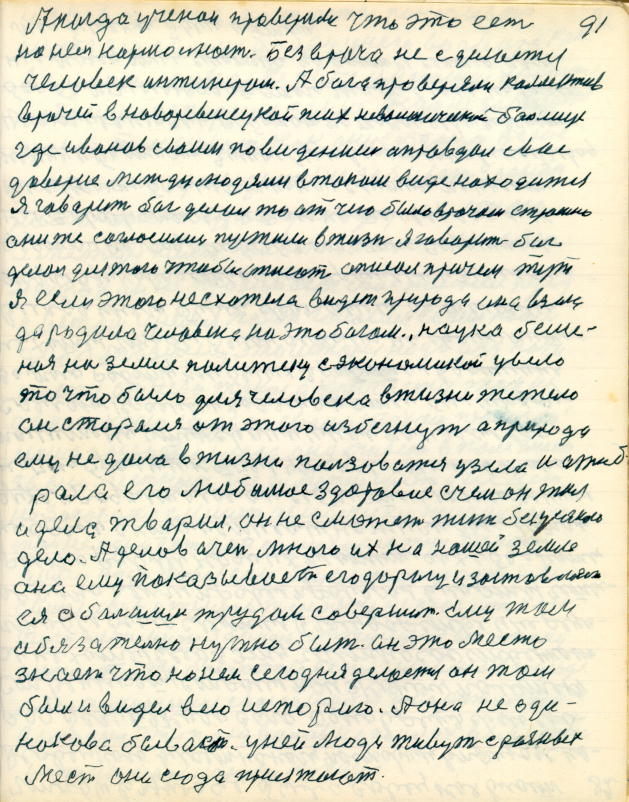 А когда ученои проверили что это ест 91
на нем нармолност. без врача не сделоется
человек интинером. А бога проверяли коллектив
врачей в новоровенецкой псих больнице
где иванов своим поведением оправдал свае
доверие между людями в такам виде находится
Я гаварит бог делал то от чего было врачам страшно
они же согласилися пустили в жизн Я гаварит бог
делал для того чтобы описат описал причем тут
Я если этого несхотела видет природа она взяла
да родила человека на это богом., наука беше-
ная на земле политеку с экономикой увело
то что было для человека в жизни тежело
он старался от этого избегнут а природа
ему не дала в жизни ползоватся узела и атоб-
рала его любимое здоровие с чем он жил
и дела тварил, он не сможет жит без усякого
дело. А делов очен много их на нашей земле
она ему показывоет егодорогу и зоставляет
ея с болшим трудом совершит. Ему там
обязателно нужно быт. он это место
знает что на нем сегодня делоется он там
был и видел всю историю. А она не оди-
нокова бывает. у ней люди живут с разных
мест они сюда приезжают.